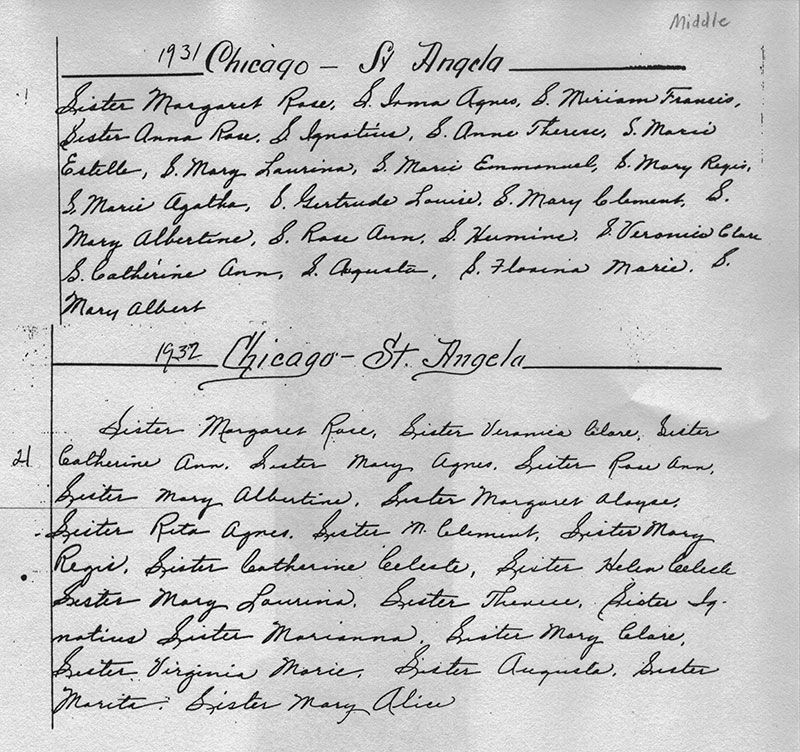 Middle
1931 Chicago – St Angela
Sister Margaret Rose, S. Irma Agnes, S. Miriam Francis,
Sister Anna Rose, S Ignatius, S. Anne Therese, S. Marie
Estelle, S. Mary Laurina, S. Marie Emmanuel, S. Mary Regis,
S. Marie Agatha, S. Gertrude Louise, S. Mary Clement, S.
Mary Albertine, S. Rose Ann, S. S. Veronica Clare
S. Catherine Ann, S. Augusta, S. Florina Marie. S.
Mary Albert
1932 Chicago – St. Angela
Sister Margaret Rose, Sister Veronica Clare, Sister
21 Catherine Ann, Sister Mary Agnes, Sister Rose Ann,
Sister Mary Albertine, Sister Margaret Aloyse,
Sister Rita Agnes, Sister M. Clement, Sister Mary
Regis, Sister Catherine Celeste, Sister Helen Celeste
Sister Mary Laurina, Sister Therese, Sister Ig-
natius Sister Marianna, Sister Mary Clare,
Sister Virginia Marie, Sister Augusta, Sister
Marita, Sister Mary Alice